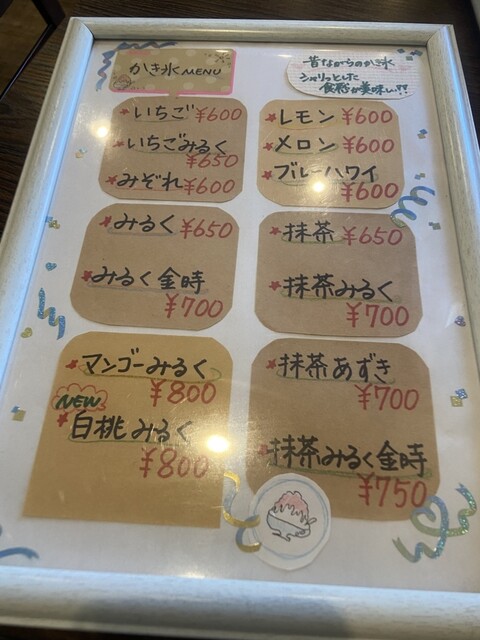 かき氷 MENU
昔ながらのかき氷
シャリっとした
食感が美味い!!
いちご ¥600
いちごみるく
¥650
みぞれ ¥600
レモン ¥600
メロン ¥600
ブルーハワイ
¥600
みるく ¥650
みるく金時
¥700
抹茶 ¥650
抹茶みるく
¥700
マンゴーみるく
¥800
NEW
白桃みるく
¥800
抹茶あずき
¥700
抹茶みるく金時
¥750